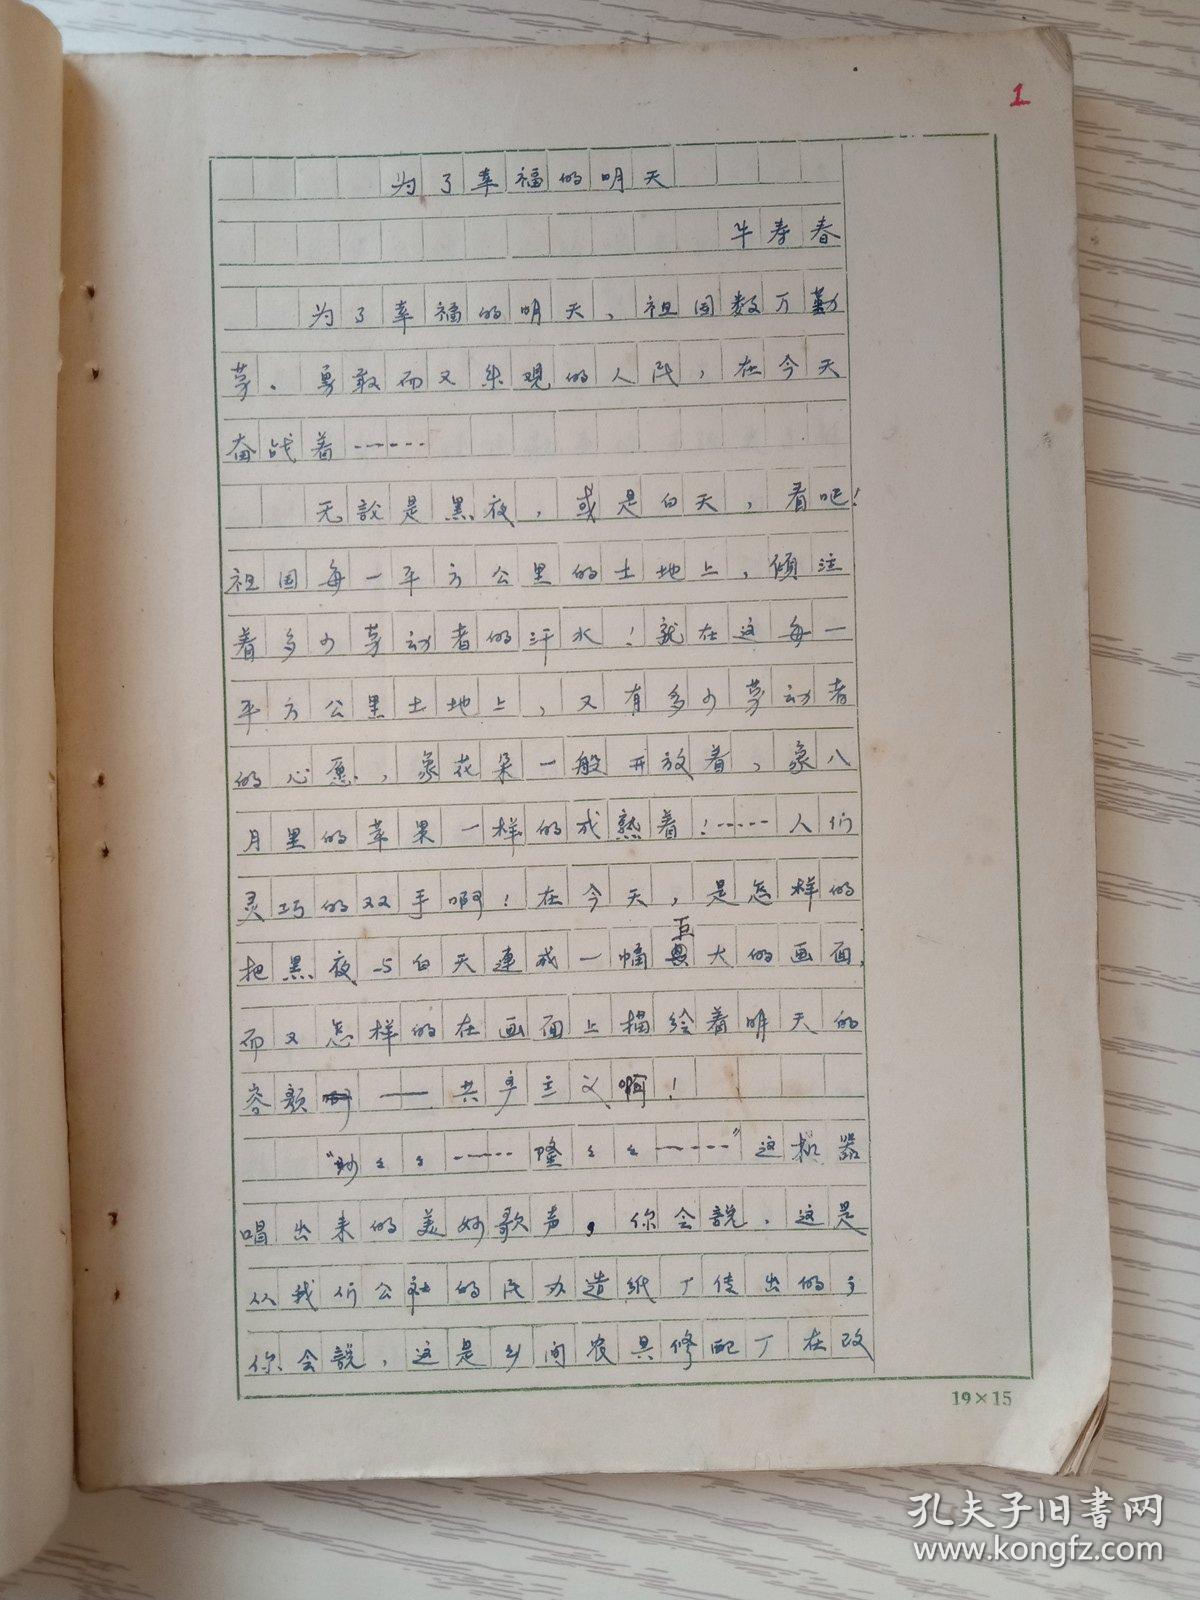 1
为了幸福的明天
牛寿春
为了幸福的明天，祖国数万勤
劳、勇敢而又乐观的人民，在今天
奋战着……
无論是黑夜，或是白天，看吧！
祖国每一平方公里的土地上，倾注
着多少劳动者的汗水！就在这每一
平方公里土地上，又有多少劳动者
的心愿，象花朵一般开放着，象八
月里的苹果一样的成熟着！……人们
灵巧的双手啊！在今天，是怎样的
把黑夜与白天連成一幅巨大的画面，
而又怎样的在画面上描绘着明天的
容颜——共产主义啊！
“吵々々……隆々々……”这机器
唱出来的美妙歌声，你会說，这是
从我们公社的民办造纸厂传出的；
你会說，这是乡间农具修配厂在改
19×15
孔夫子旧书网
www.kongfz.com